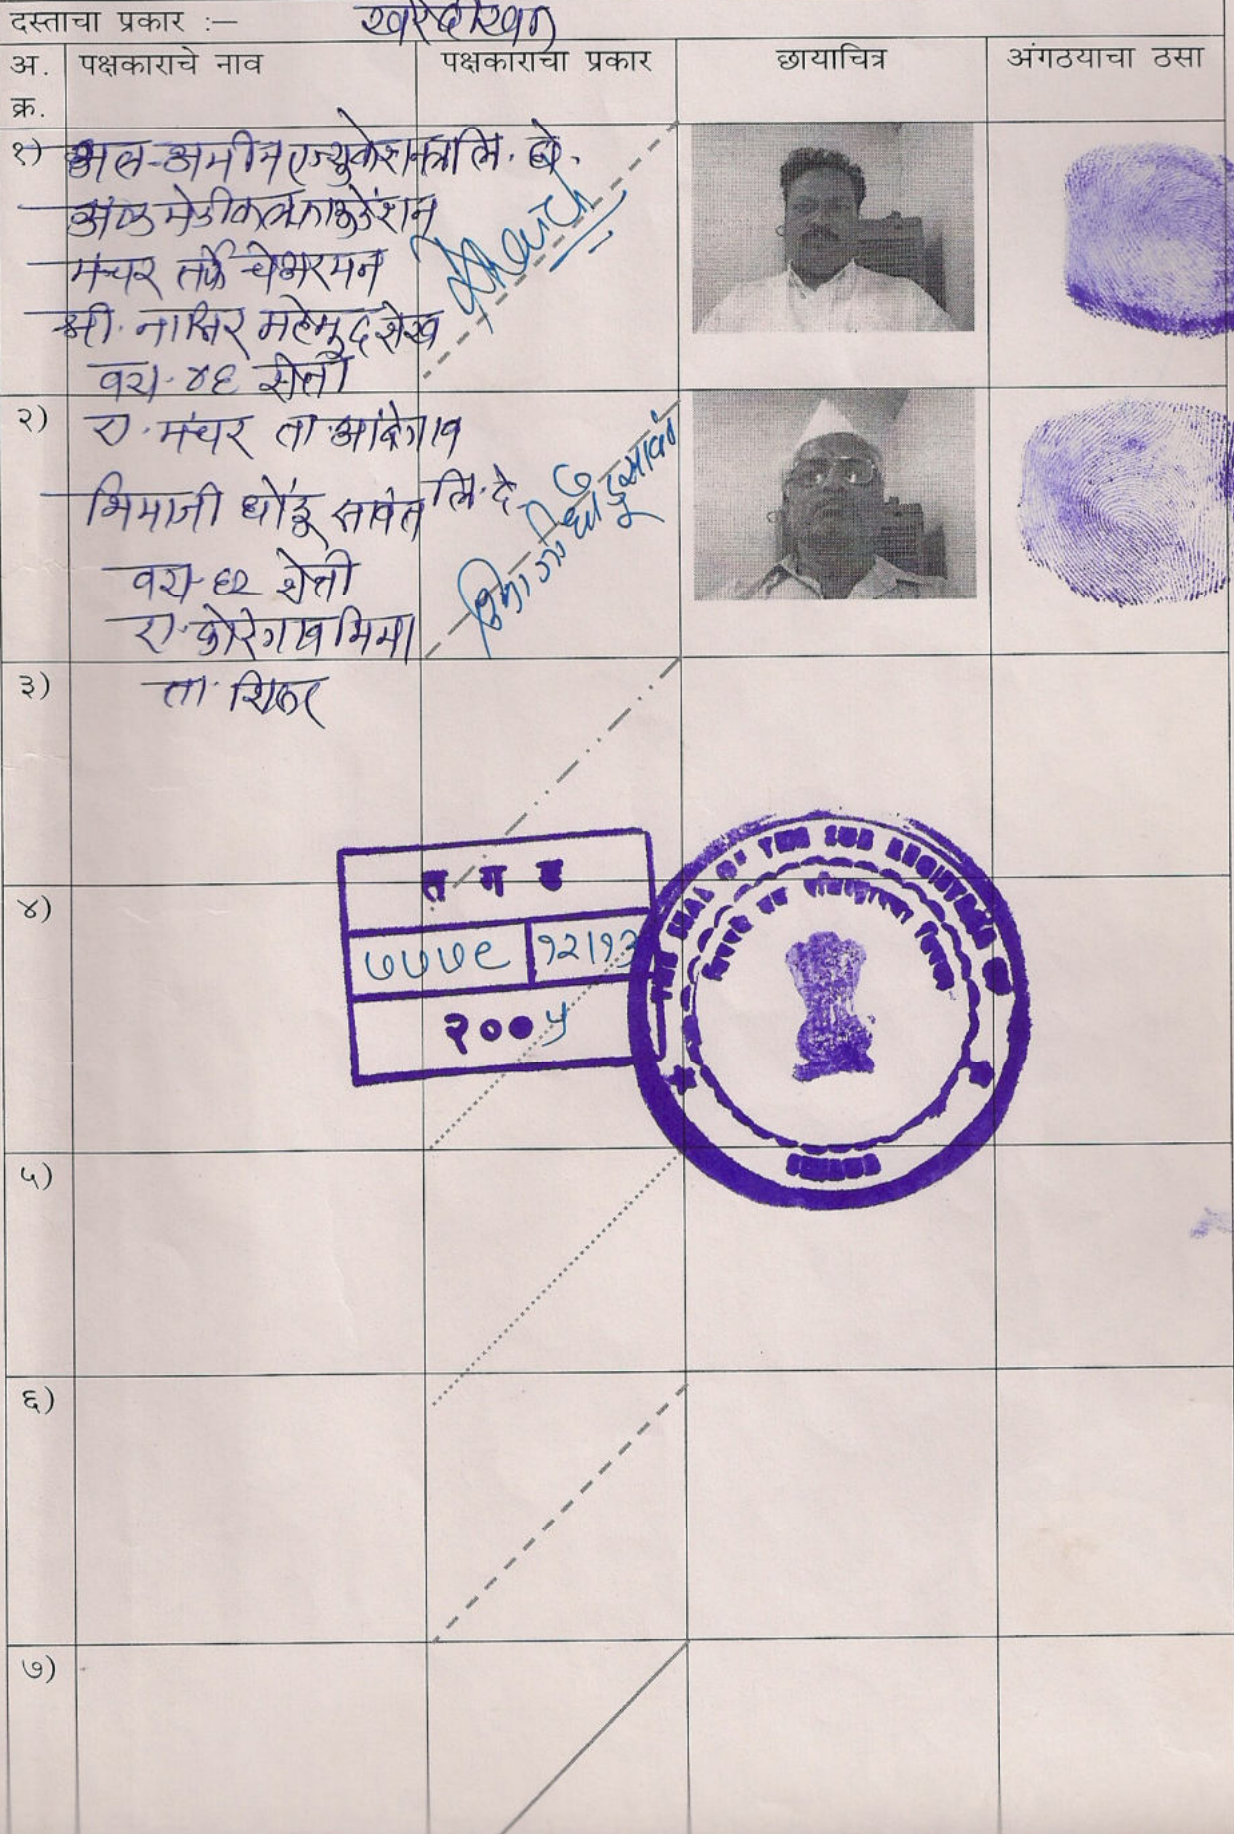 दस्ताचा प्रकार :— खरेदीखत
अ. क्र. पक्षकाराचे नाव पक्षकाराचा प्रकार छायाचित्र अंगठयाचा ठसा
१) अल-अमीन एज्युकेशनल लि. घे.
अॅण्ड मेडीकल फाऊंडेशन
मंचर तर्फे चेअरमन
श्री. नासिर महेमुद शेख
वय- ४६ शेती
२) रा. मंचर ता आंबेगाव
भिमाजी धोंडू सावंत लि. दे
भिमाजी धोंडू सावंत
वय- ६२ शेती
रा. कोरेगाव भिमा
३) ता. शिरूर
त ग ड
४)
७७७९ १२/१३
२००५
THE SEAL OF THE SUB REGISTRAR
५)
६)
७)